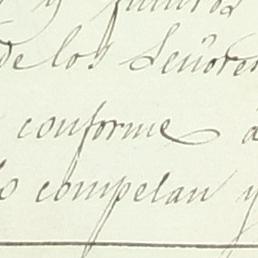 y futuros
de los Señores
conforme a
lo compelan y